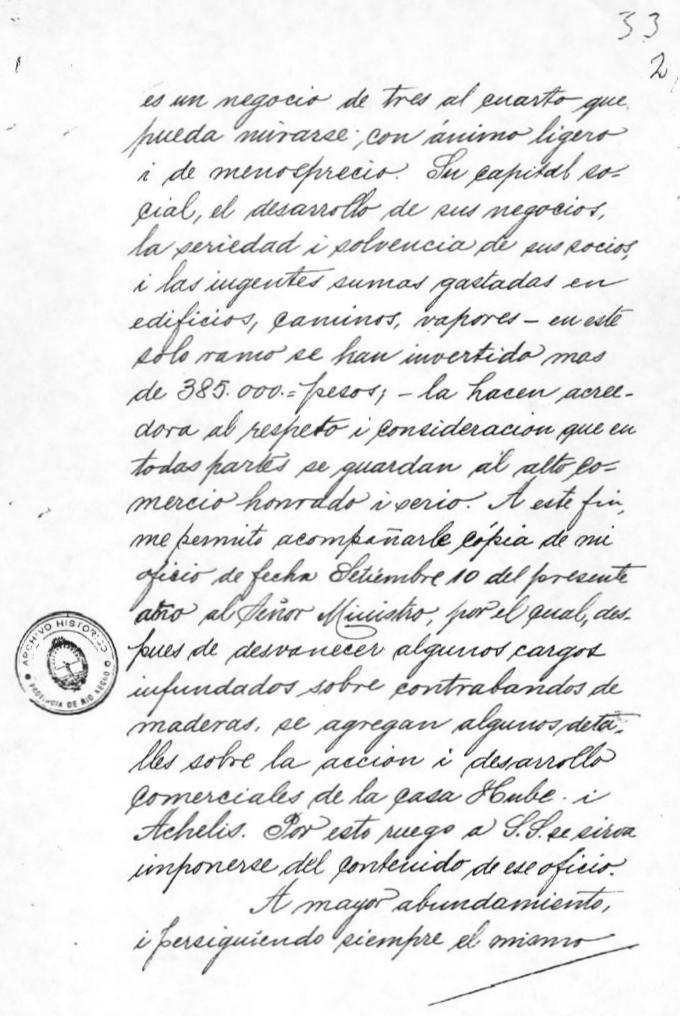 33
2
es un negocio de tres al cuarto que
pueda mirarse, con ánimo ligero
i de menosprecio. Su capital so-
cial, el desarrollo de sus negocios,
la seriedad i solvencia de sus socios,
i las ingentes sumas gastadas en
edificios, caminos, vapores - en este
solo ramo se han invertido mas
de 385.000.= pesos; - la hacen acree-
dora al respeto i consideracion que en
todas partes se guardan al alto co-
mercio honrado i serio. A este fin,
me permito acompañarle cópia de mi
oficio de fecha Setiembre 10 del presente
año al Señor Ministro, por el cual, des-
pues de desvanecer algunos cargos
infundados sobre contrabandos de
maderas, se agregan algunos deta-
lles sobre la accion i desarrollo
comerciales de la casa Hube i
Achelis. Por esto ruego a S.S. se sirva
imponerse del contenido de ese oficio.
A mayor abundamiento,
i persiguiendo siempre el mismo
ARCHIVO HISTORICO
PROVINCIA DE RIO NEGRO